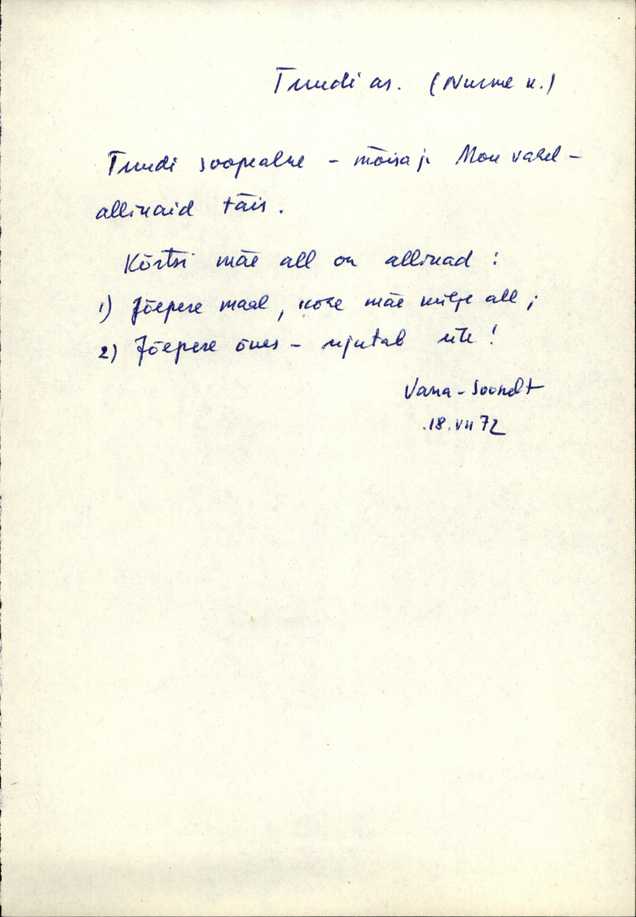 Tuudi as. (Nurme k.)
Tuudi soopealne - mõisa ja Mõu vahel -
allikaid täis.
Kõrtsi mäe all on allikad :
1) Jõepere maal, kose mäe külje all ;
2) Jõepere õues - ujutab üle !
Vana-Soondt
18.VII 72